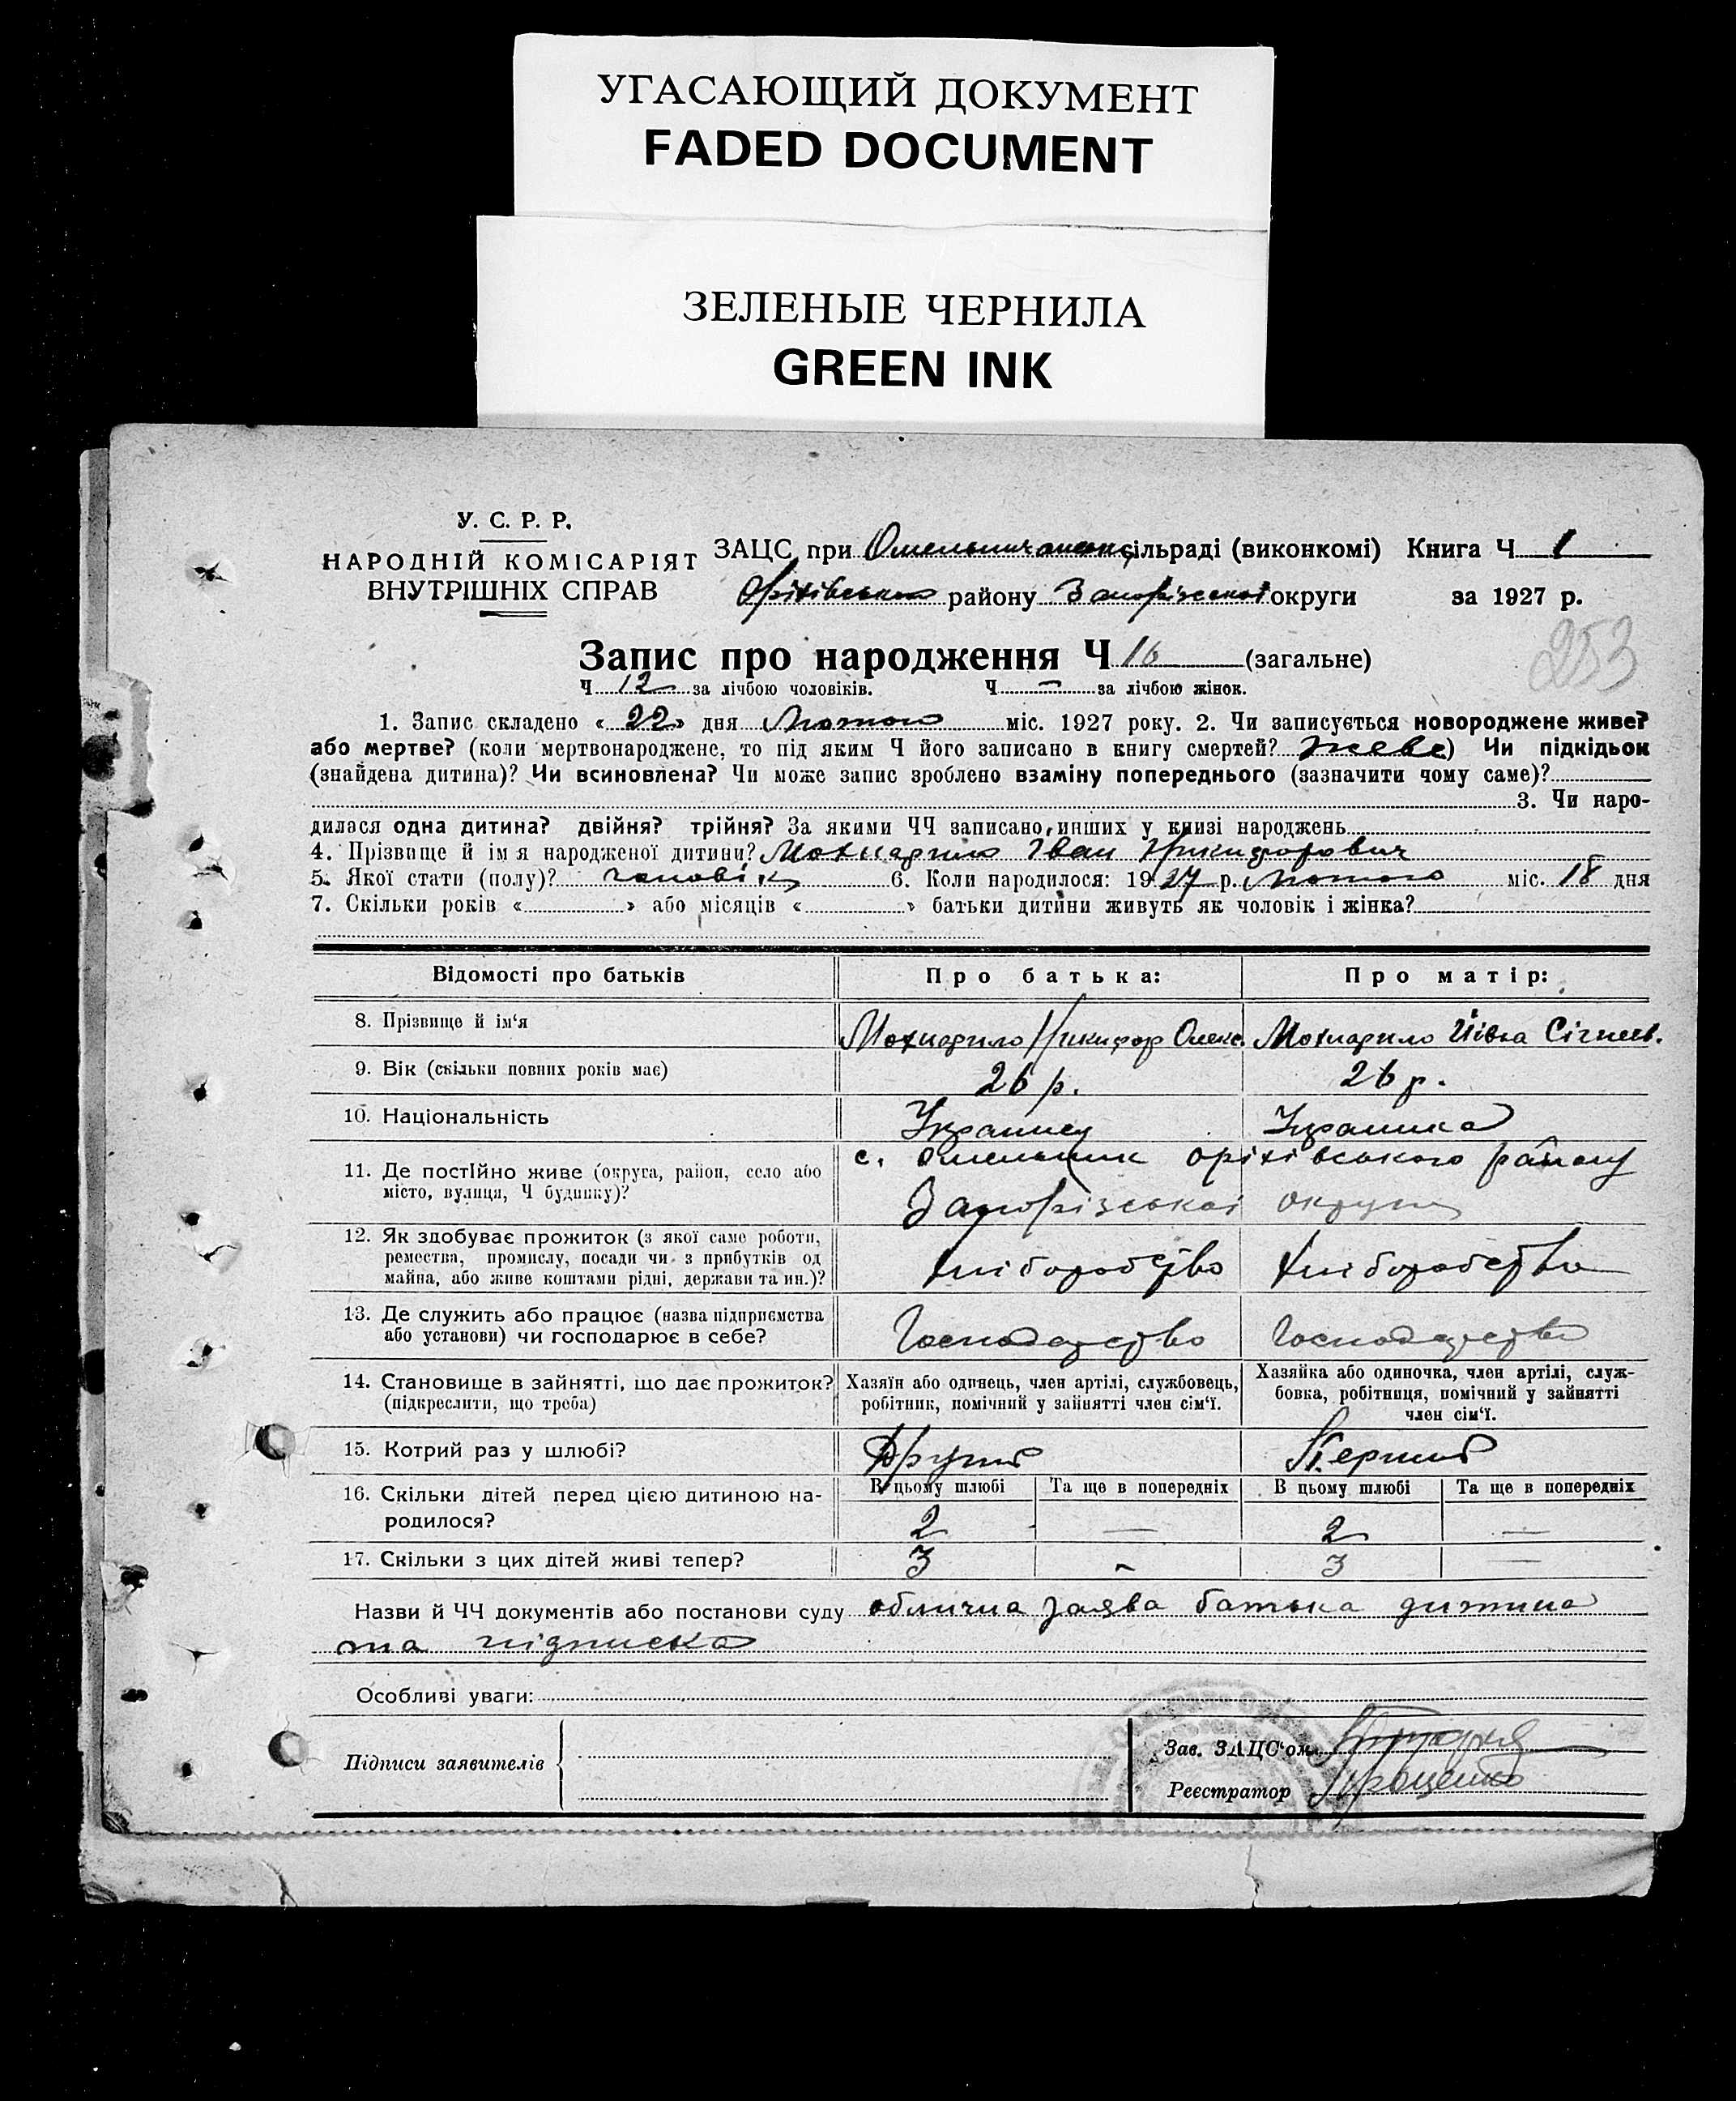 УГАСАЮЩИЙ ДОКУМЕНТ
FADED DOCUMENT
ЗЕЛЕНЫЕ ЧЕРНИЛА
GREEN INK
У. С. Р. Р.
НАРОДНІЙ КОМІСАРІЯТ
ВНУТРІШНІХ СПРАВ
ЗАЦС при сільраді (виконкомі) Книга Ч 1
Оріхівського району Запорізської округи за 1927 р.
253
Запис про народження Ч 16 (загальне)
Ч 12 за лічбою чоловіків. Ч — за лічбою жінок.
1. Запис складено « 22 » дня Лютого міс. 1927 року. 2. Чи записується новороджене живе?
або мертве? (коли мертвонароджене, то під яким Ч його записано в книгу смертей? живе) Чи підкідьок
(знайдена дитина)? Чи всиновлена? Чи може запис зроблено взаміну попереднього (зазначити чому саме)?
3. Чи наро-
дилася одна дитина? двійня? трійня? За якими ЧЧ записано инших у книзі народжень
4. Прізвище й ім я народженої дитини? Мохнарило Іван Никифорович
5. Якої стати (полу)? чоловік 6. Коли народилося: 1927 р. Лютого міс. 18 дня
7. Скільки років « » або місяців « » батьки дитини живуть як чоловік і жінка?
Відомості про батьків Про батька: Про матір:
8. Прізвище й ім‘я Мохнарило Никифор Олекс. Мохнарило
9. Вік (скільки повних років має) 26 р. 26 р.
10. Національність Українец Українка
11. Де постійно живе (округа, район, село або с. Омельник оріхівського району
місто, вулиця, Ч будинку)? Запорізської округи
12. Як здобуває прожиток (з якої саме роботи,
ремества, промислу, посади чи з прибутків од
майна, або живе коштами рідні, держави та ин.)? хліборобство хліборобство
13. Де служить або працює (назва підприємства
або установи) чи господарює в себе? Господарство Господарство
14. Становище в зайнятті, що дає прожиток?
(підкреслити, що треба)
Хазяїн або одинець, член артілі, службовець,
робітник, помічний у зайнятті член сім‘ї.
Хазяйка або одиночка, член артілі, служ-
бовка, робітниця, помічний у зайнятті
член сім‘ї.
15. Котрий раз у шлюбі? Другий Первий
16. Скільки дітей перед цією дитиною на-
родилося?
В цьому шлюбі Та ще в попередніх В цьому шлюбі Та ще в попередніх
2 — 2 —
17. Скільки з цих дітей живі тепер? 3 - 3 —
Назви й ЧЧ документів або постанови суду облична заява батька дитини
та підписка
Особливі уваги:
Підписи заявителів
Зав. ЗАЦС‘ом
Реєстратор